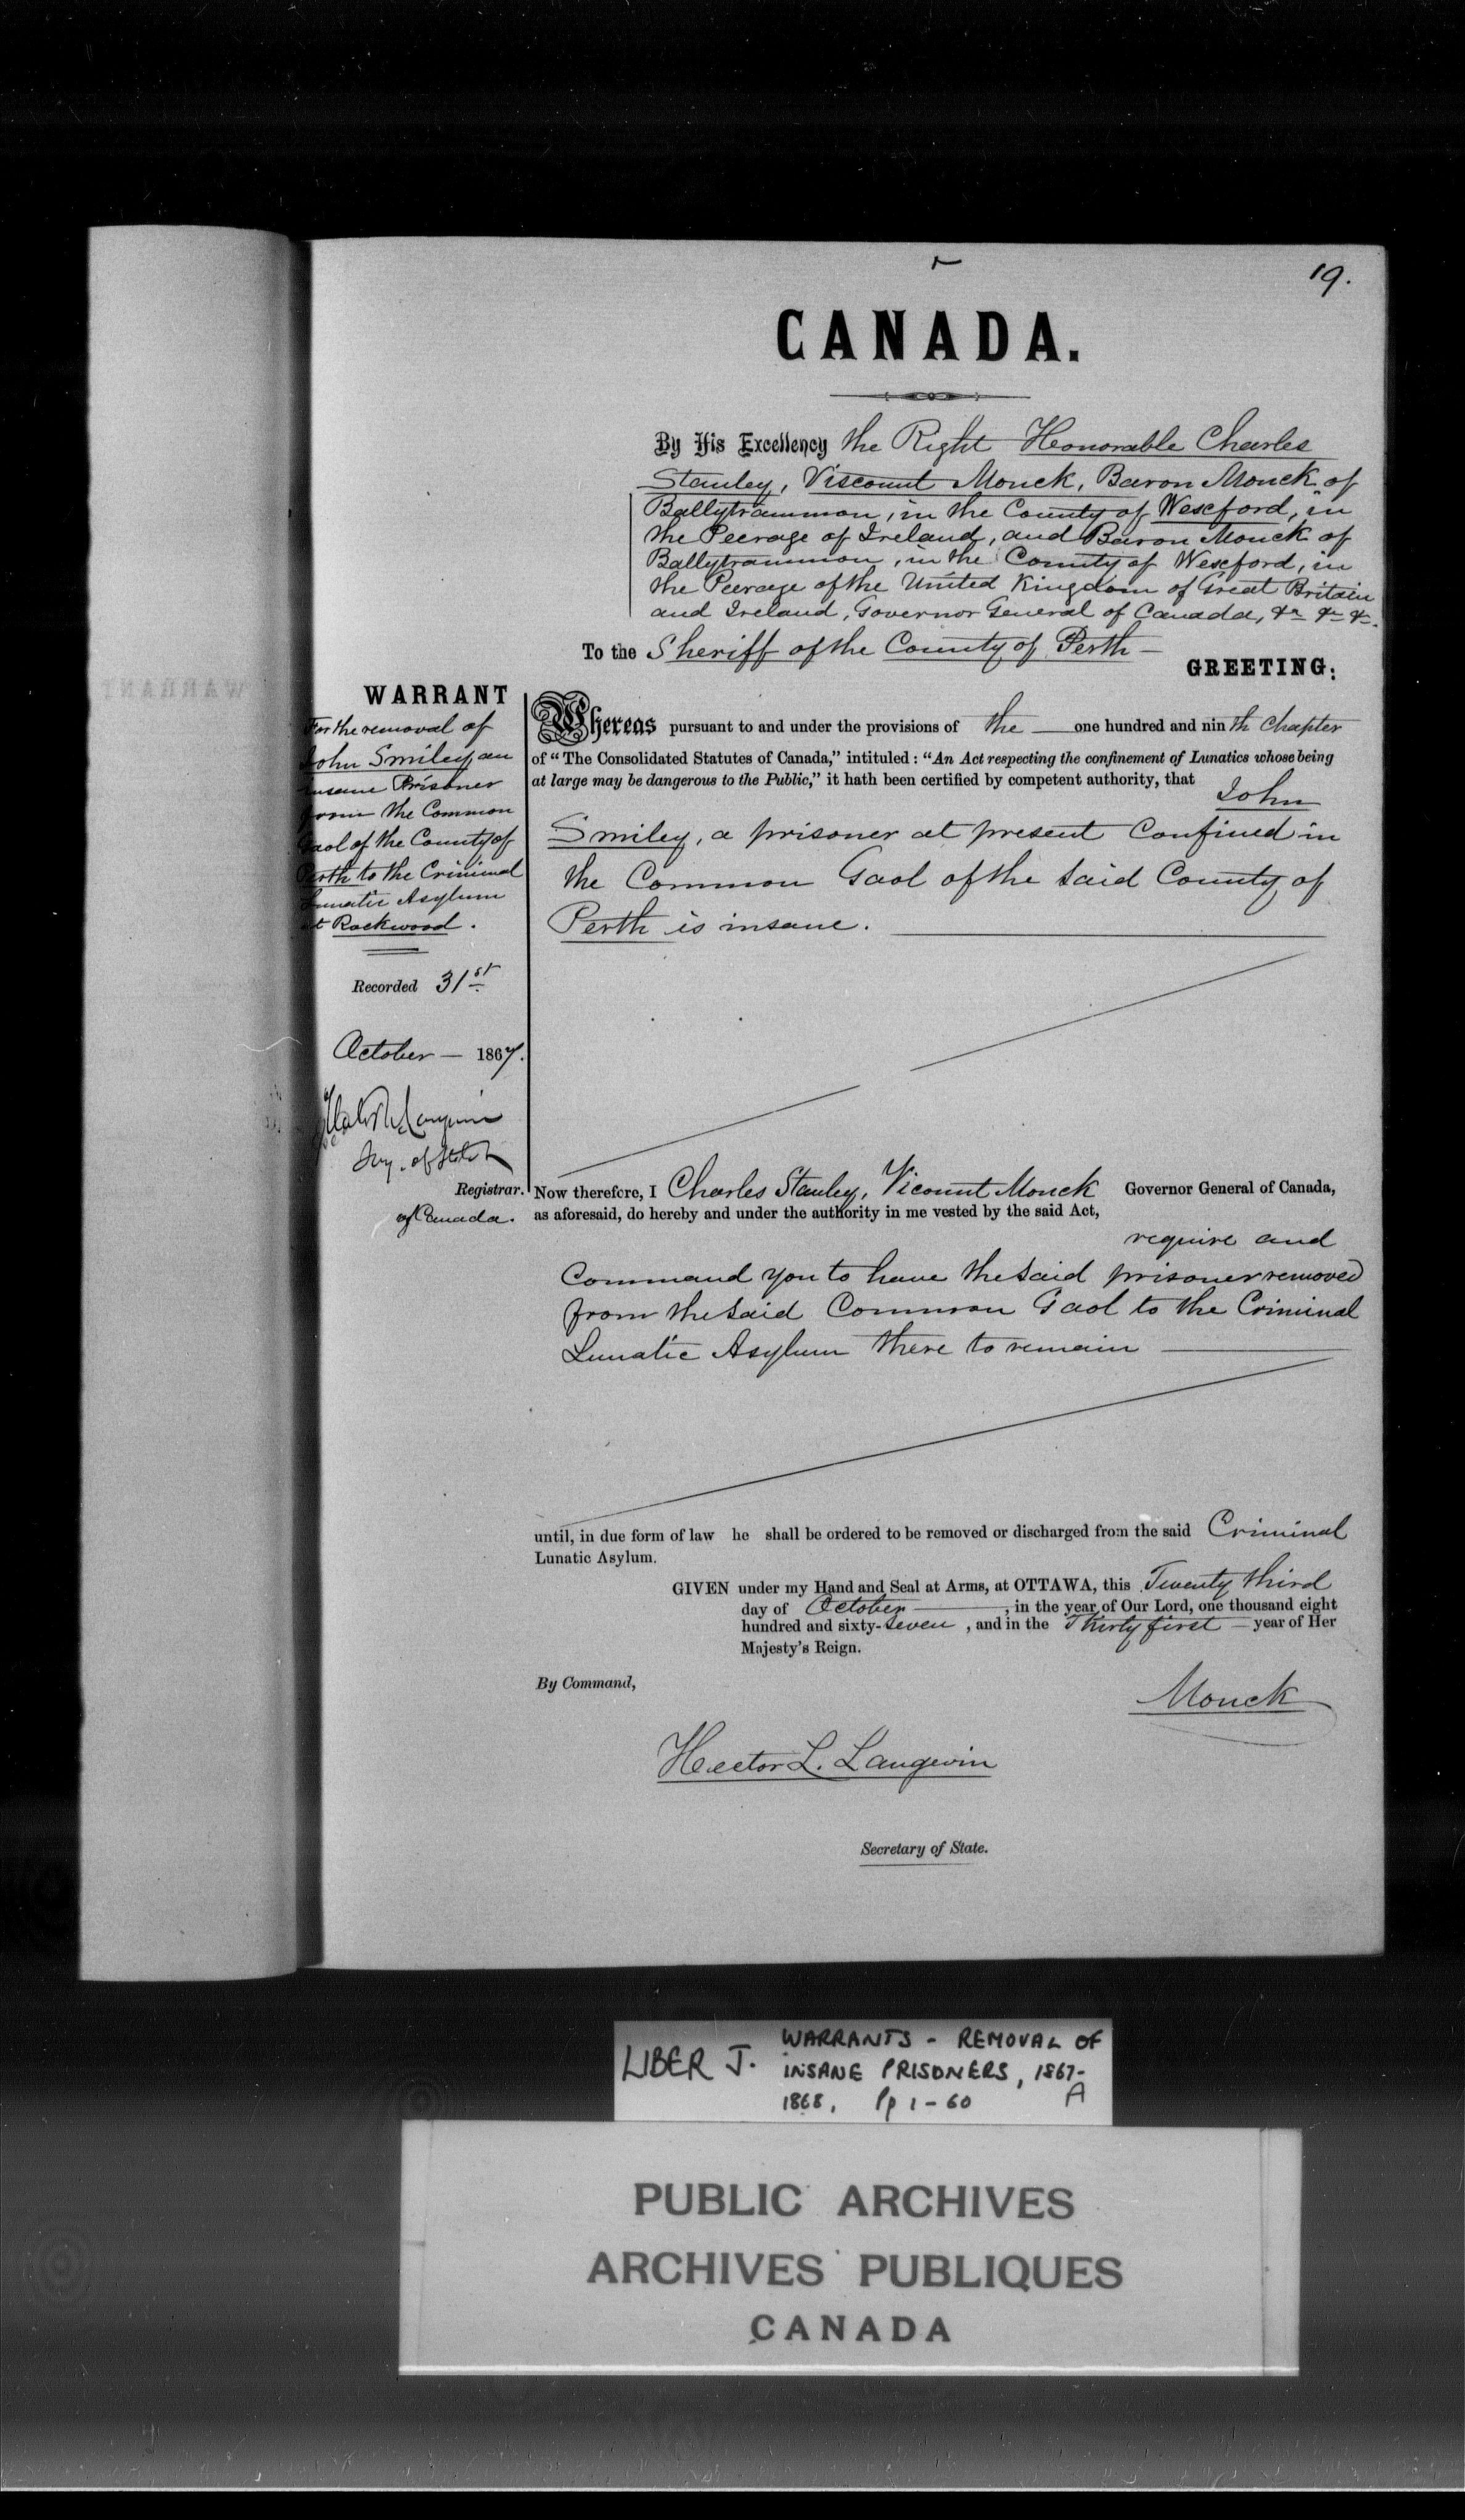 19.
CANADA.
By His Excellency the Right Honorable Charles
Stanley, Viscount Monck, Baron Monck of
Ballytrammon, in the County of Wexford, in
the Peerage of Ireland, and Baron Monck of
Ballytrammon, in the County of Wexford, in
the Peerage of the United Kingdom of Great Britain
and Ireland, Governor General of Canada, &c &c &c.
To the Sheriff of the County of Perth —
GREETING:
WARRANT
For the removal of
John Smiley, an
insane Prisoner
from the Common
Gaol of the County of
Perth to the Criminal
Lunatic Asylum
at Rockwood.
Recorded 31st
October — 1867.
Langevin
Secy. of State
Registrar.
of Canada.
Whereas pursuant to and under the provisions of the — one hundred and ninth Chapter
of "The Consolidated Statutes of Canada," intituled: "An Act respecting the confinement of Lunatics whose being
at large may be dangerous to the Public," it hath been certified by competent authority, that
John
Smiley, a prisoner at present Confined in
the Common Gaol of the said County of
Perth is insane.
Now therefore, I Charles Stanley, Vicount Monck Governor General of Canada,
as aforesaid, do hereby and under the authority in me vested by the said Act,
require and
Command you to have the said prisoner removed
from the said Common Gaol to the Criminal
Lunatic Asylum there to remain
until, in due form of law he shall be ordered to be removed or discharged from the said Criminal
Lunatic Asylum.
GIVEN under my Hand and Seal at Arms, at OTTAWA, this Twenty third
day of October —, in the year of Our Lord, one thousand eight
hundred and sixty-seven, and in the Thirty first — year of Her
Majesty's Reign.
By Command,
Monck
Hector L. Langevin
Secretary of State.
LIBER J. WARRANTS - REMOVAL OF
INSANE PRISONERS, 1867-
1868, Pp 1-60 A
PUBLIC ARCHIVES
ARCHIVES PUBLIQUES
CANADA